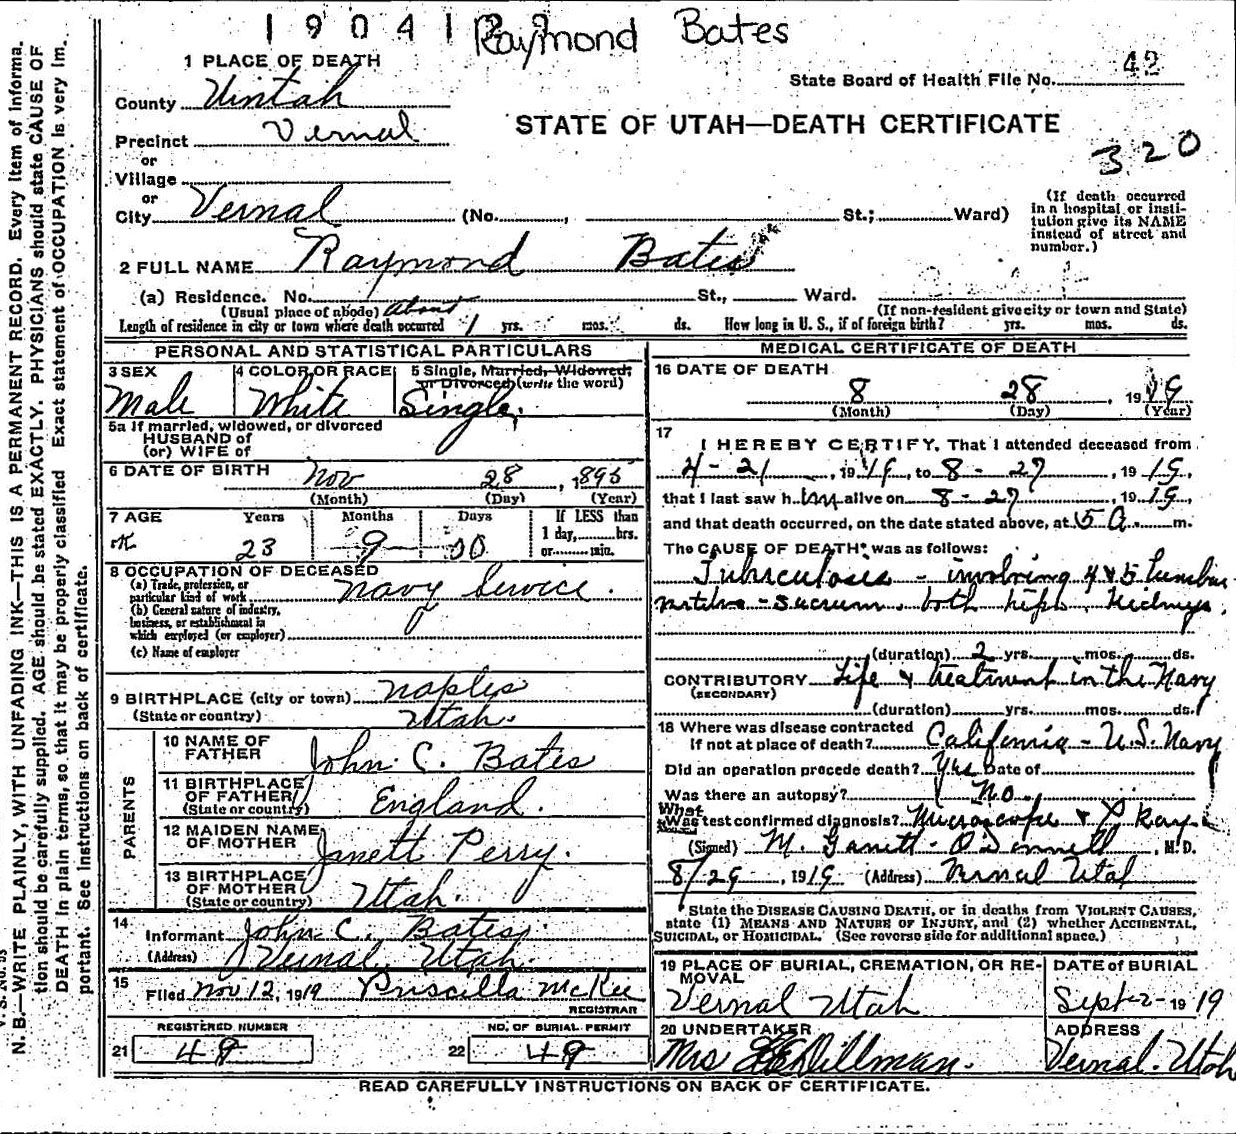 1904122 Raymond Bates
1 PLACE OF DEATH
State Board of Health File No. 42
County Uintah
STATE OF UTAH—DEATH CERTIFICATE
Precinct Vernal
320
or
Village
or
City Vernal (No. , St.; Ward)
(If death occurred in a hospital or insti-
tution give its NAME instead of street and number.)
2 FULL NAME Raymond Bates
(a) Residence. No. St., Ward.
(Usual place of abode) (If non-resident give city or town and State)
Length of residence in city or town where death occurred about 1 yrs. mos. ds. How long in U. S., if of foreign birth? yrs. mos. ds.
PERSONAL AND STATISTICAL PARTICULARS
3 SEX Male
4 COLOR OR RACE White
5 Single, Married, Widowed, or Divorced (write the word) Single
5a If married, widowed, or divorced
HUSBAND of
(or) WIFE of
6 DATE OF BIRTH Nov 28, 1895
(Month) (Day) (Year)
7 AGE Years Months Days If LESS than
1 day, hrs.
or min.
23 9 00
8 OCCUPATION OF DECEASED
(a) Trade, profession, or particular kind of work Navy Service.
(b) General nature of industry, business, or establishment in which employed (or employer)
(c) Name of employer
9 BIRTHPLACE (city or town) Naples
(State or country) Utah.
PARENTS
10 NAME OF FATHER John C. Bates
11 BIRTHPLACE OF FATHER (State or country) England.
12 MAIDEN NAME OF MOTHER Janett Perry.
13 BIRTHPLACE OF MOTHER (State or country) Utah.
14 Informant John C. Bates.
(Address) Vernal, Utah.
15 Filed Nov 12, 1919 Priscilla McKee
REGISTRAR
REGISTERED NUMBER
21 48
NO. OF BURIAL PERMIT
22 49
MEDICAL CERTIFICATE OF DEATH
16 DATE OF DEATH
8 28, 1919
(Month) (Day) (Year)
17 I HEREBY CERTIFY, That I attended deceased from
4-21, 1919, to 8-27, 1919,
that I last saw him alive on 8-27, 1919,
and that death occurred, on the date stated above, at 5 a. m.
The CAUSE OF DEATH* was as follows:
Tuberculosis - involving 4 & 5 lumbar
- sacrum. both hips, Kidneys.
(duration) 2 yrs. mos. ds.
CONTRIBUTORY Life & treatment in the Navy
(SECONDARY)
(duration) yrs. mos. ds.
18 Where was disease contracted
If not at place of death? California - U.S. Navy
Did an operation precede death? Yes Date of
Was there an autopsy? No.
What test confirmed diagnosis? Microscope & X Ray
(Signed) M. Garrett O'Donnell, M.D.
8/29, 1919 (Address) Vernal Utah
State the DISEASE CAUSING DEATH, or in deaths from VIOLENT CAUSES,
state (1) MEANS AND NATURE OF INJURY, and (2) whether ACCIDENTAL,
SUICIDAL, or HOMICIDAL. (See reverse side for additional space.)
19 PLACE OF BURIAL, CREMATION, OR RE-
MOVAL
Vernal Utah
DATE of BURIAL
Sept-2-1919
20 UNDERTAKER
Mrs Dillman.
ADDRESS
Vernal. Utah
READ CAREFULLY INSTRUCTIONS ON BACK OF CERTIFICATE.
N. B.—WRITE PLAINLY, WITH UNFADING INK—THIS IS A PERMANENT RECORD. Every item of informa-
tion should be carefully supplied. AGE should be stated EXACTLY. PHYSICIANS should state CAUSE OF
DEATH in plain terms, so that it may be properly classified Exact statement of OCCUPATION is very im-
portant. See instructions on back of certificate.